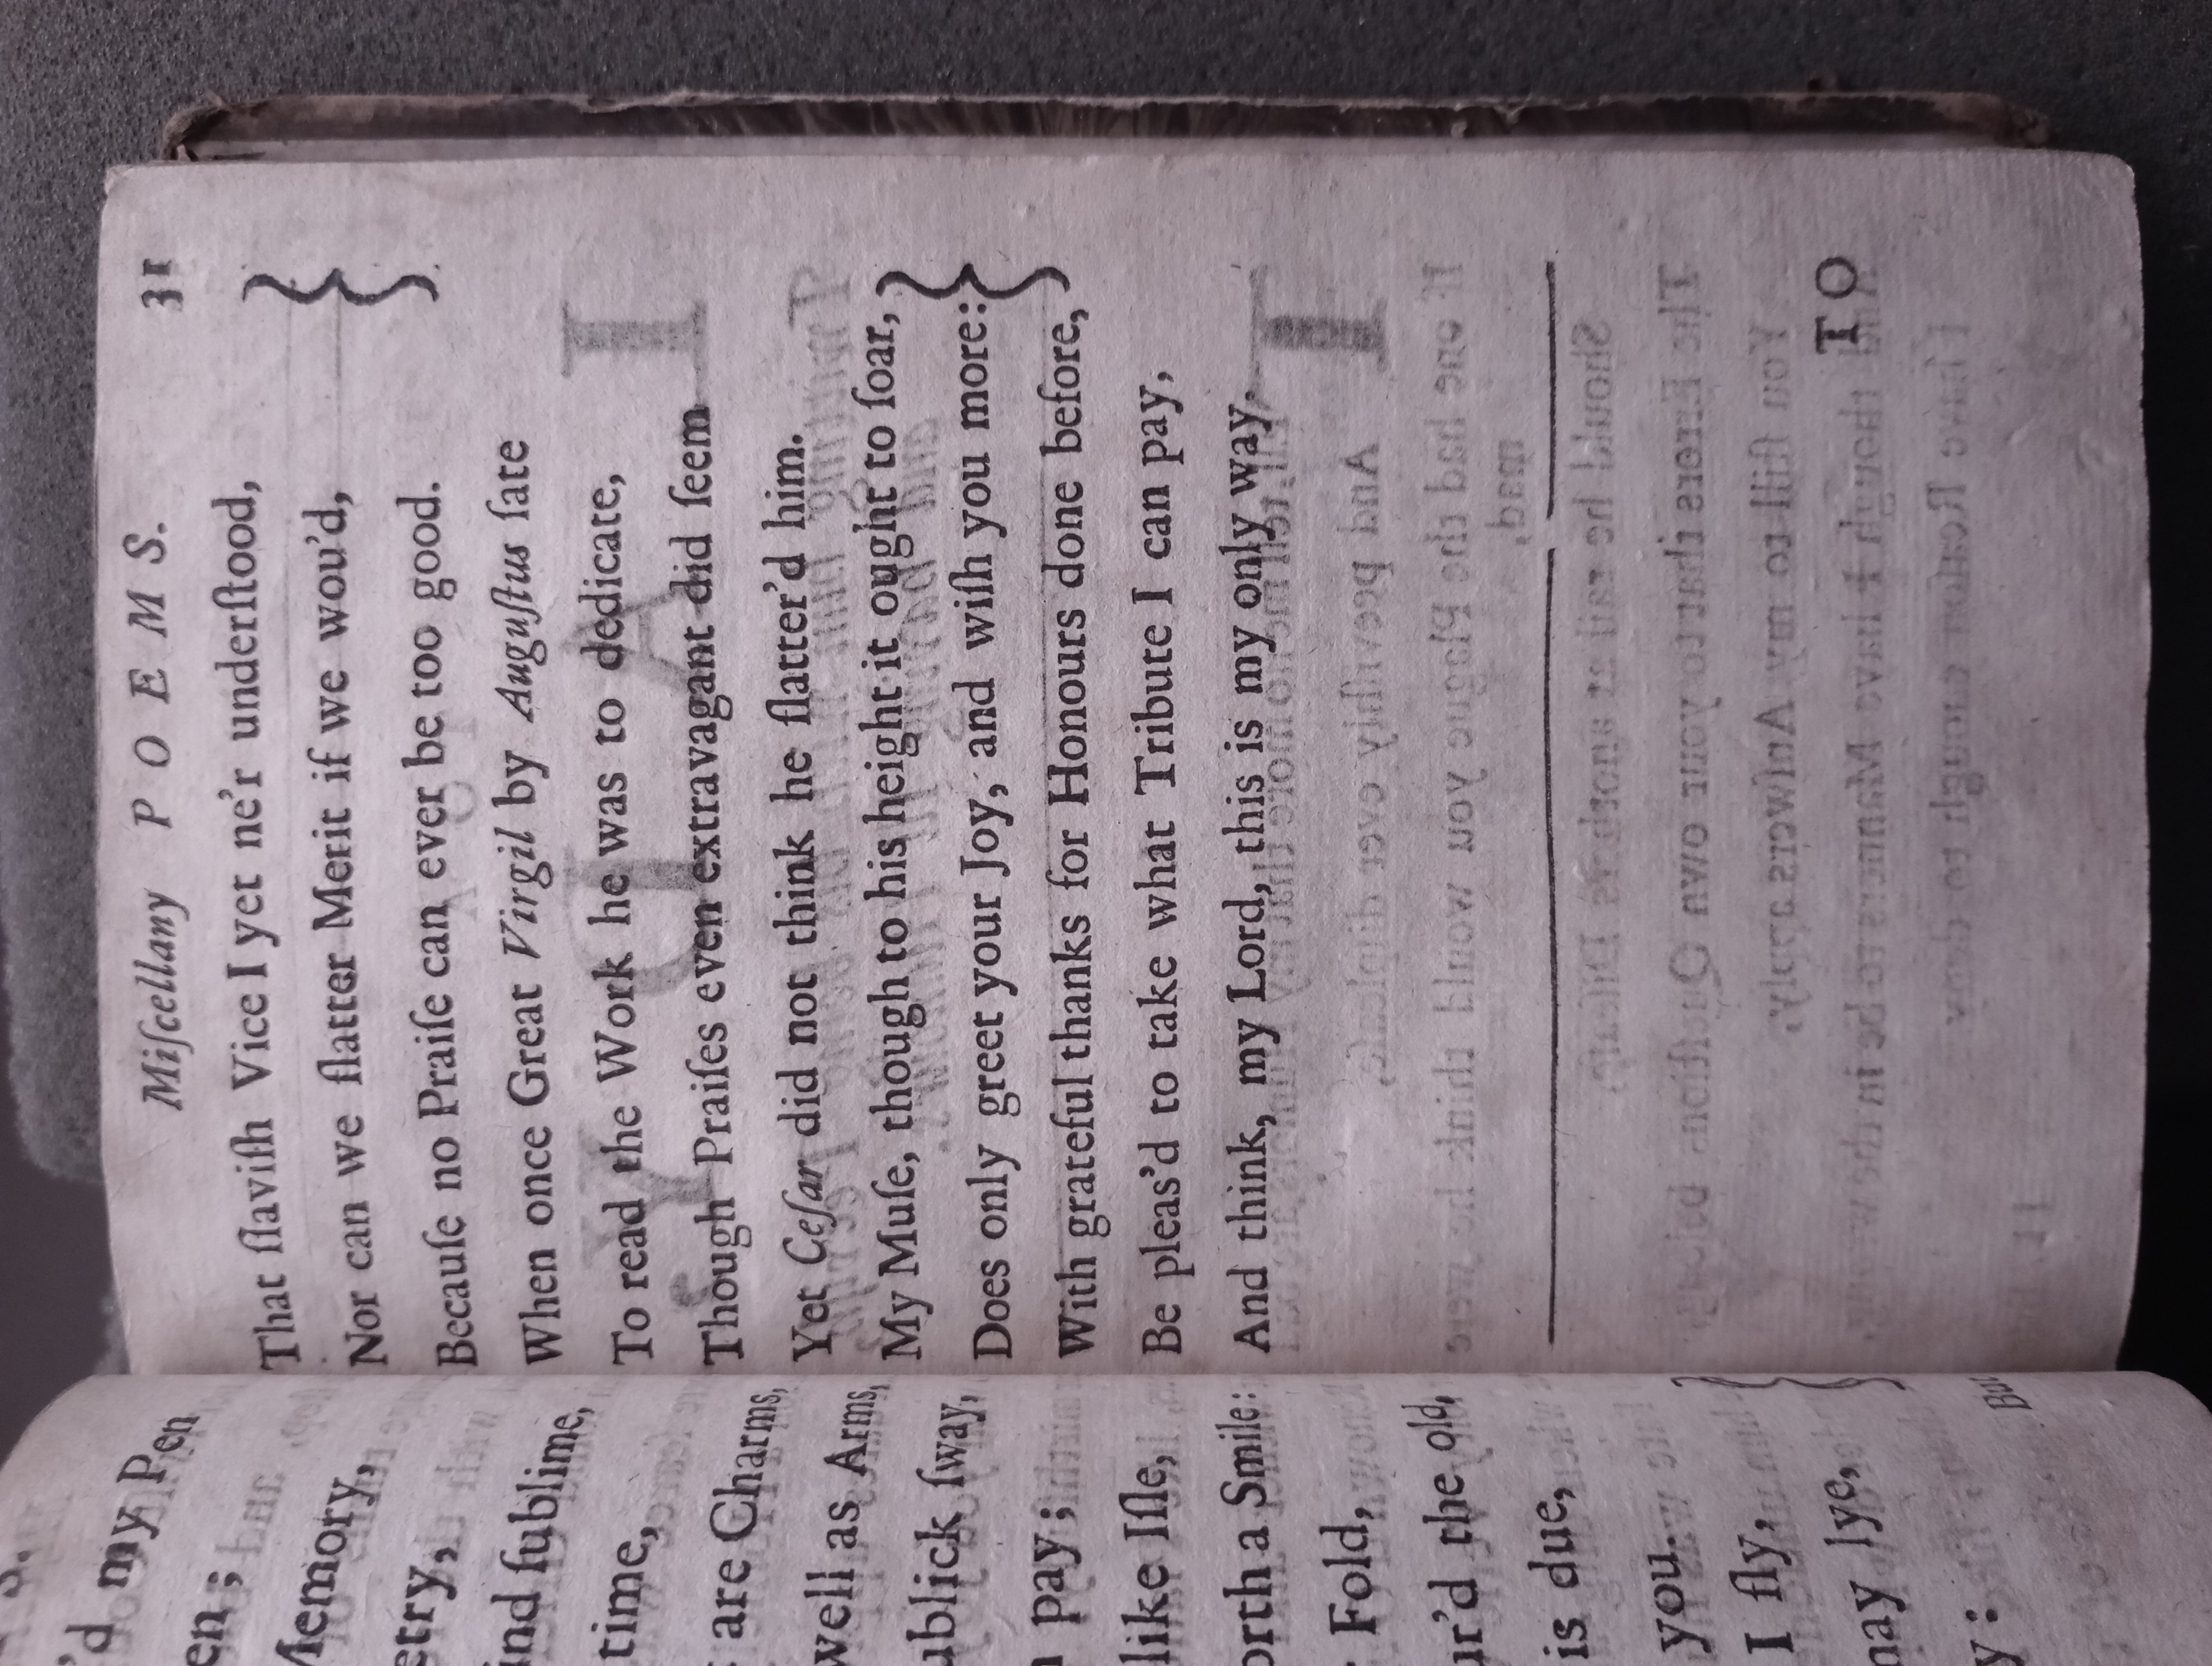 S.
'd my Pen
en ;
Memory,
etry,
and ſublime,
time,
are Charms,
well as Arms,
ublick ſway,
pay ;
like Iſle,
orth a Smile:
Fold,
ur'd the old,
is due,
you.
I fly,
may lye,
y :
But
Miſcellany P O E M S. 31
That ſlaviſh Vice I yet ne'r underſtood,
Nor can we flatter Merit if we wou'd,
Becauſe no Praiſe can ever be too good.
When once Great Virgil by Auguſtus ſate
To read the Work he was to dedicate,
Though Praiſes even extravagant did ſeem
Yet Ceſar did not think he flatter'd him.
My Muſe, though to his height it ought to ſoar,
Does only greet your Joy, and wiſh you more:
With grateful thanks for Honours done before,
Be pleas'd to take what Tribute I can pay,
And think, my Lord, this is my only way.
T O